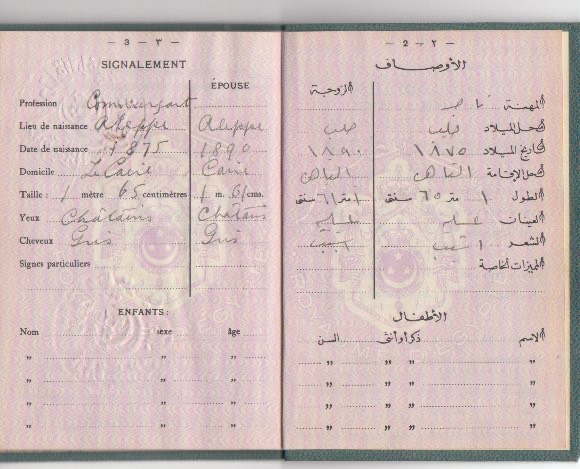 — 3 — ٣ —
SIGNALEMENT
ÉPOUSE
Profession Commerçant
Lieu de naissance Aleppe Aleppe
Date de naissance 1875 1890
Domicile Le Caire Caire
Taille : 1 mètre 65 centimètres 1 m. 61 cms.
Yeux Châtains Châtains
Cheveux Gris Gris
Signes particuliers
ENFANTS :
Nom sexe âge
„ „ „
„ „ „
„ „ „
„ „ „
— 2 — ٢ —
الأوصاف
الزوجة
المهنة تاجر
محل الميلاد حلب حلب
تاريخ الميلاد ١٨٧٥ ١٨٩٠
محل الإقامة القاهرة القاهرة
الطول ١ متر ٦٥ سنتى ١ متر ٦١ سنتى
العينان عسلية عسلية
الشعر أشيب أشيب
المميزات الخاصة
الأطفال
الاسم ذكر أو أنثى السن
„ „ „ „
„ „ „ „
„ „ „ „
„ „ „ „